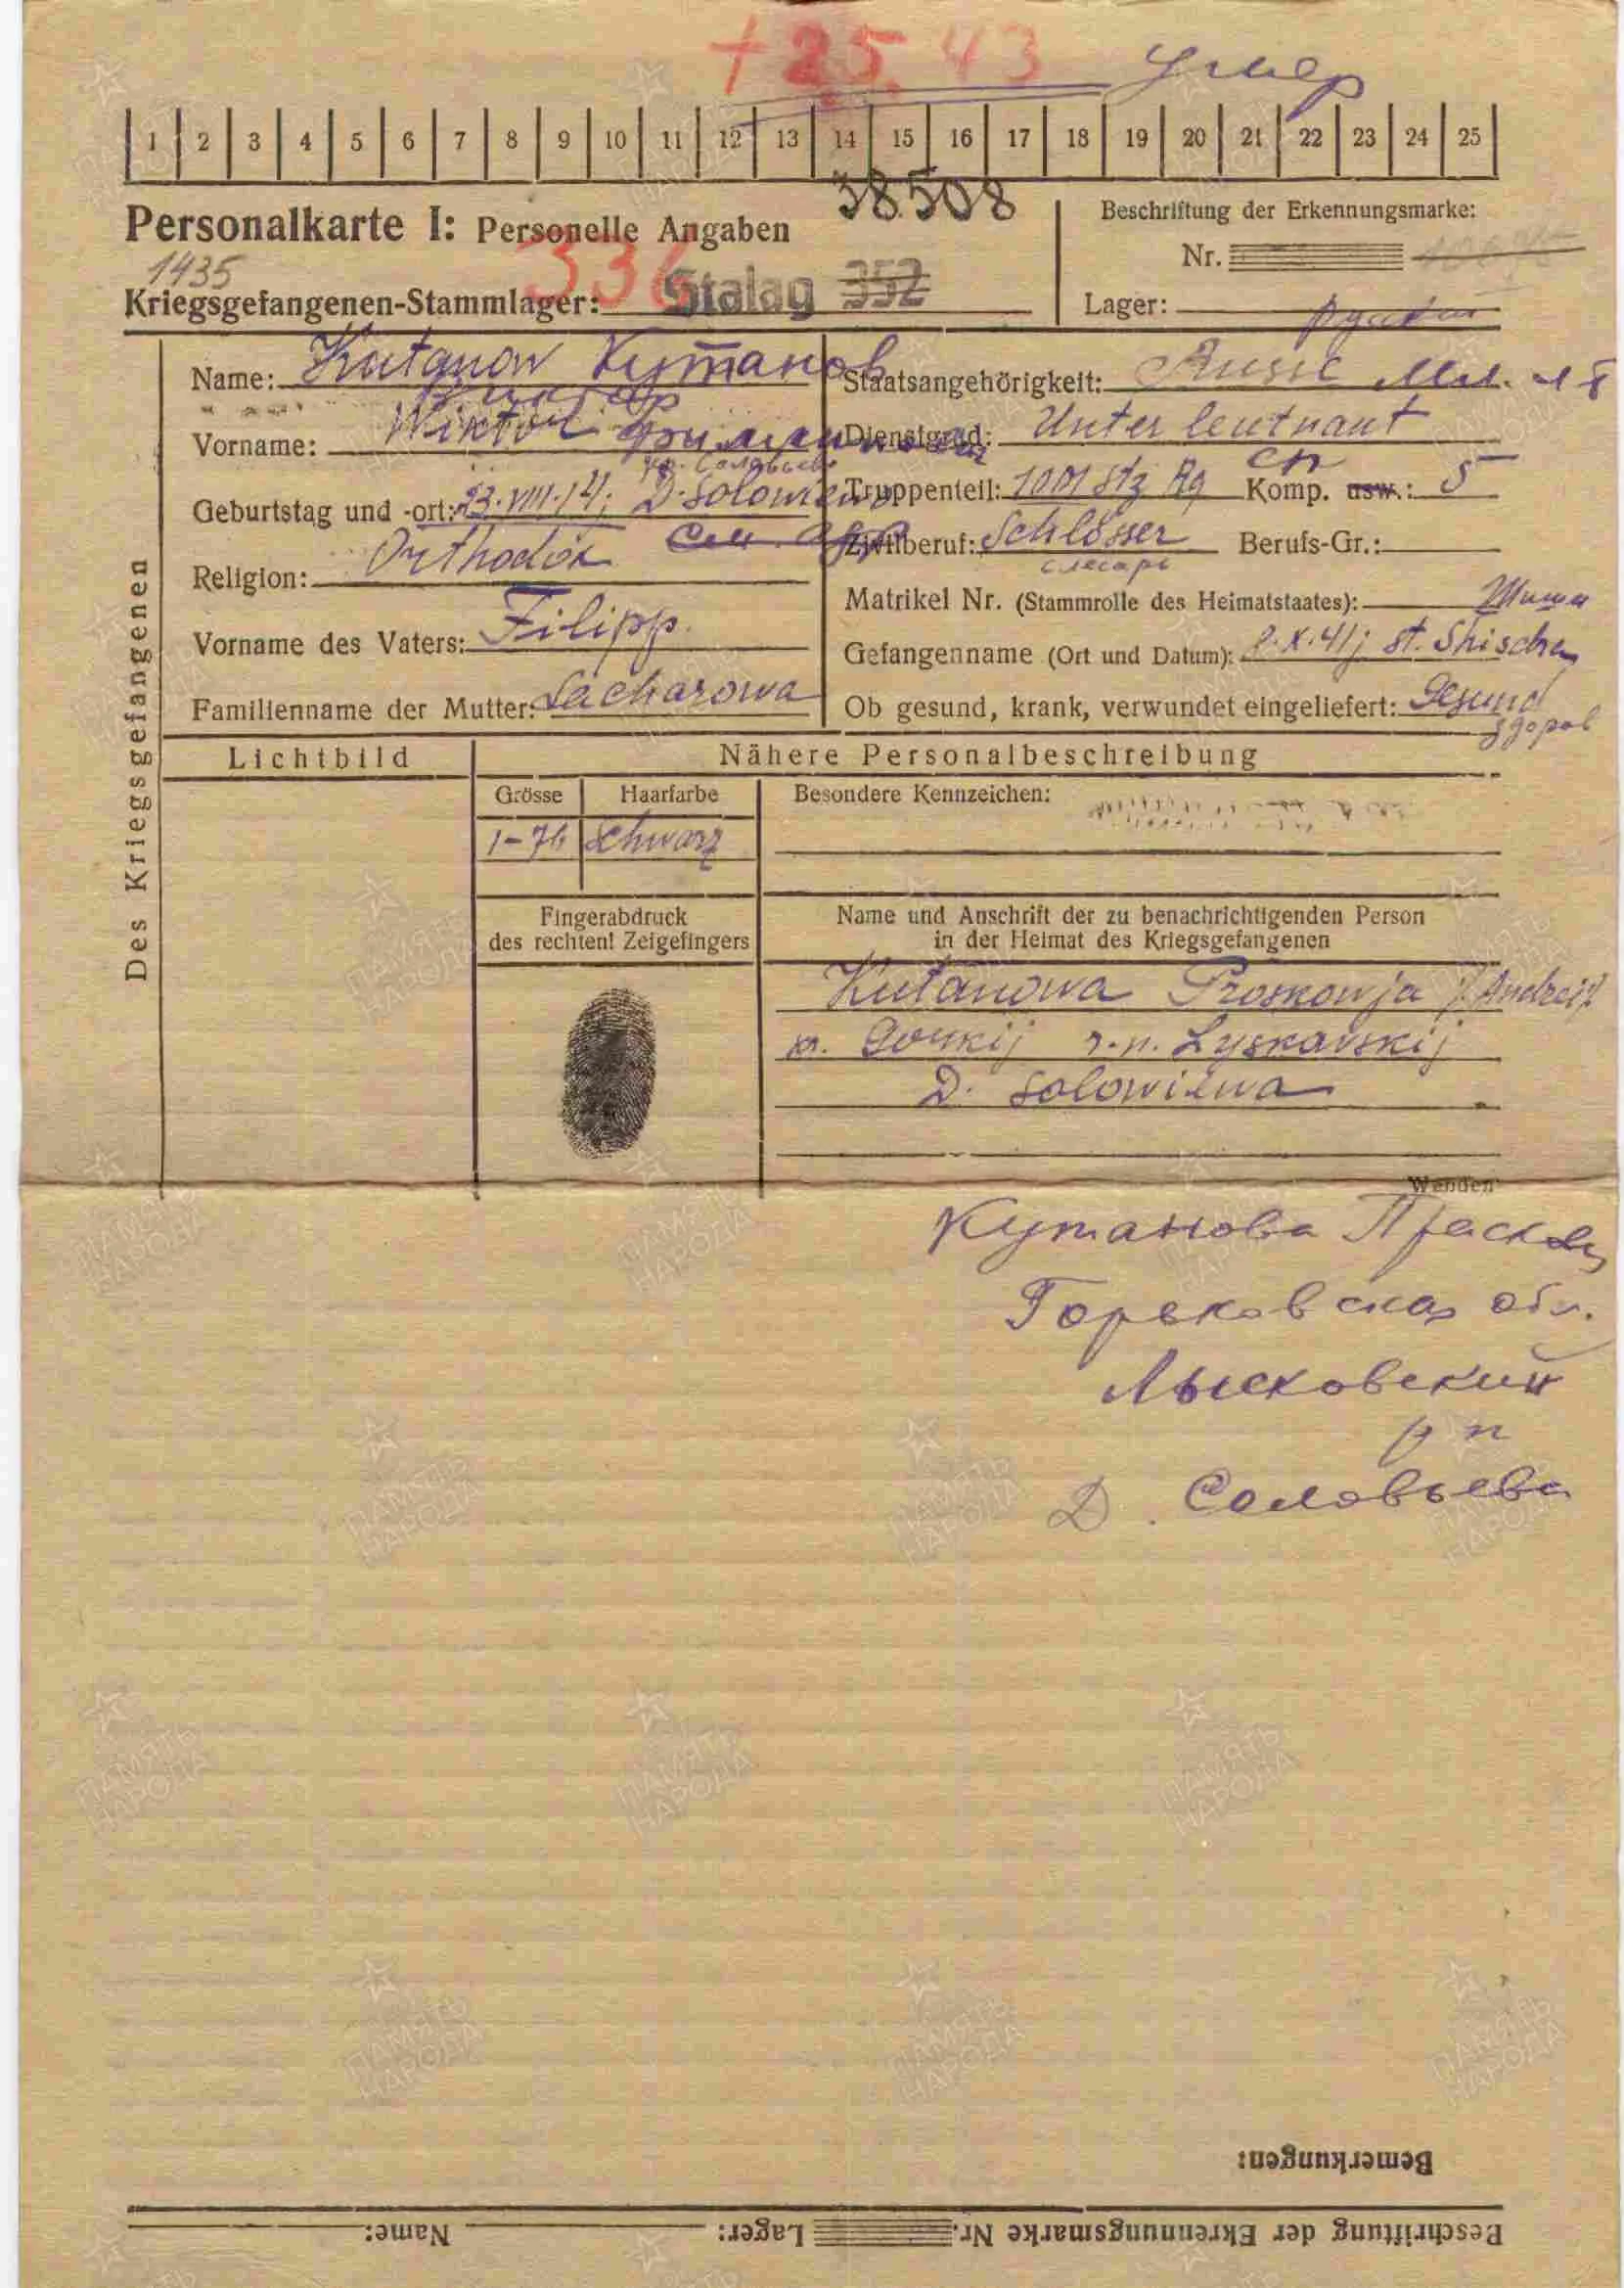 + 2 5. 43 умер
1 2 3 4 5 6 7 8 9 10 11 12 13 14 15 16 17 18 19 20 21 22 23 24 25
38.508
Personalkarte I: Personelle Angaben
Beschriftung der Erkennungsmarke:
Nr.
1435
336
Kriegsgefangenen-Stammlager: Stalag 352
Lager:
Des Kriegsgefangenen
Name: Kutanow Кутанов
Staatsangehörigkeit:
Виктор
Vorname: Wiktor
Dienstgrad: Unter leutnant
Geburtstag und -ort: D. Solowiewa
Truppenteil: 1001 Stz Rg Komp. usw.: 5
сп
Religion: Orthodox
Zivilberuf: Schlösser Berufs-Gr.:
слесарь
Matrikel Nr. (Stammrolle des Heimatstaates):
Vorname des Vaters: Filipp.
Gefangenname (Ort und Datum): 8.X.41; st.
Familienname der Mutter: Sacharowa
Ob gesund, krank, verwundet eingeliefert: Gesund
здоров
Lichtbild
Nähere Personalbeschreibung
Grösse Haarfarbe
1-76 Schwarz
Besondere Kennzeichen:
Fingerabdruck
des rechten! Zeigefingers
Name und Anschrift der zu benachrichtigenden Person
in der Heimat des Kriegsgefangenen
Kutanowa Proskowja
Gorkij r-n. Lyskawskij
D. Solowiewa
Wenden
Кутанова
Горьковская обл.
Лысковский
р н
Д. Соловьева
Bemerkungen:
Beschriftung der Erkennungsmarke Nr. Lager: Name:
ПАМЯТЬ
НАРОДА